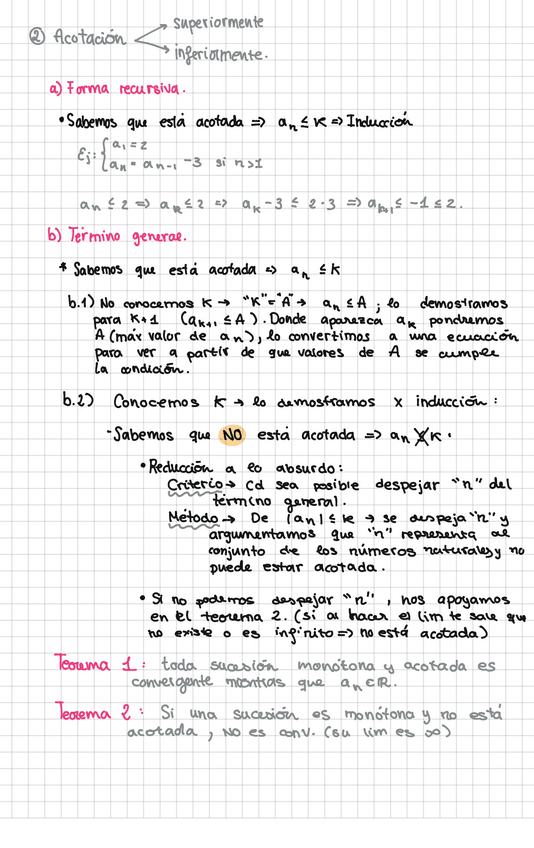 ② Acotación → superiormente
→ inferiormente.
a) Forma recursiva.
• Sabemos que está acotada => aₙ ≤ K => Inducción
Ej: { a₁ = 2
aₙ = aₙ₋₁ - 3 si n>1
aₙ ≤ 2 => aₖ ≤ 2 => aₖ - 3 ≤ 2·3 => aₖ₊₁ ≤ -1 ≤ 2.
b) Término general.
* Sabemos que está acotada => aₙ ≤ K
b.1) No conocemos K → "K"="A" → aₙ ≤ A ; lo demostramos
para K+1 (aₖ₊₁ ≤ A). Donde aparezca aₖ pondremos
A (máx valor de aₙ), lo convertimos a una ecuación
para ver a partir de que valores de A se cumple
la condición.
b.2) Conocemos K → lo demostramos x inducción :
- Sabemos que NO está acotada => aₙ ≰ K .
• Reducción a lo absurdo:
Criterio → Cd sea posible despejar "n" del
término general.
Método → De |aₙ| ≤ K → se despeja "n" y
argumentamos que "n" representa al
conjunto de los números naturales y no
puede estar acotada.
• Si no podemos despejar "n", nos apoyamos
en el teorema 2. (si al hacer el lim te sale que
no existe o es infinito => no está acotada)
Teorema 1: toda sucesión monótona y acotada es
convergente mientras que aₙ ∈ ℝ.
Teorema 2: Si una sucesión es monótona y no está
acotada, NO es conv. (su lim es ∞)